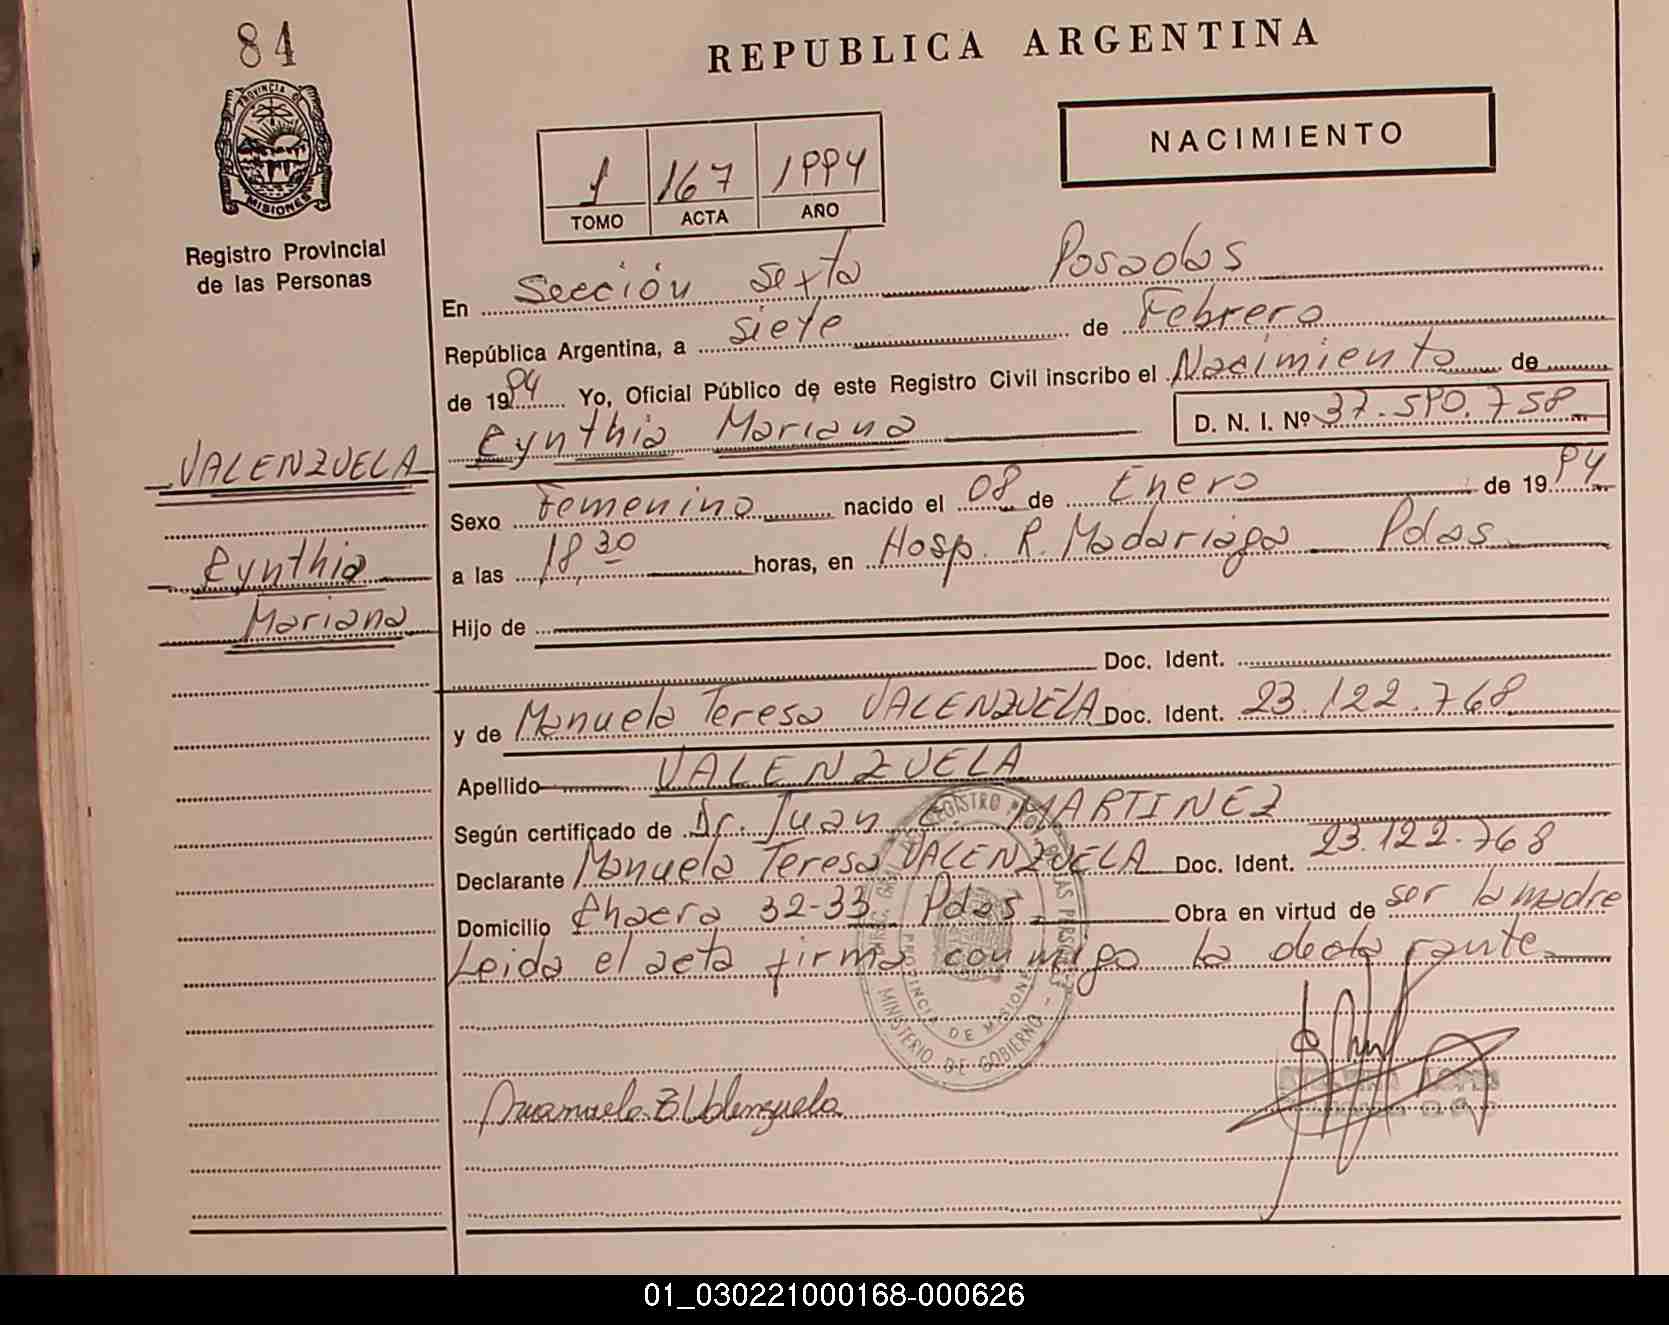 84
REPUBLICA ARGENTINA
PROVINCIA DE
MISIONES
Registro Provincial
de las Personas
1 167 1994
TOMO ACTA AÑO
NACIMIENTO
En Sección Sexta Posadas
República Argentina, a siete de Febrero
de 1994 Yo, Oficial Público de este Registro Civil inscribo el Nacimiento de
Cynthia Mariana D. N. I. Nº 37.590.758
VALENZUELA
Cynthia
Mariana
Sexo Femenino nacido el 08 de Enero de 1994
a las 18 30 horas, en Hosp. R. Madariaga Pdas
Hijo de
Doc. Ident.
y de Manuela Teresa VALENZUELA Doc. Ident. 23.122.768
Apellido VALENZUELA
Según certificado de Dr. Juan C. MARTINEZ
Declarante Manuela Teresa VALENZUELA Doc. Ident. 23.122.768
Domicilio Chacra 32-33 Pdas Obra en virtud de ser la madre
Leida el acta firma conmigo la declarante
PROVINCIA DE MISIONES
MINISTERIO DE GOBIERNO
01_030221000168-000626